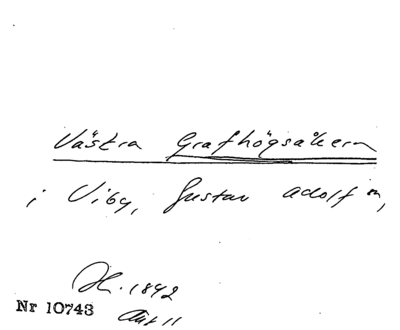 Västra Grafhögsåkern
i Viby, Gustav Adolf sn,
H. 1842
Nr 10743
Akt 11